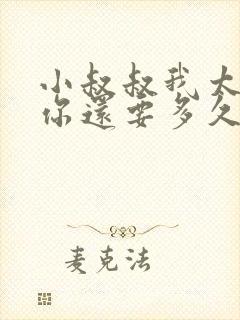 小叔叔我太
你還要多久
麦克法